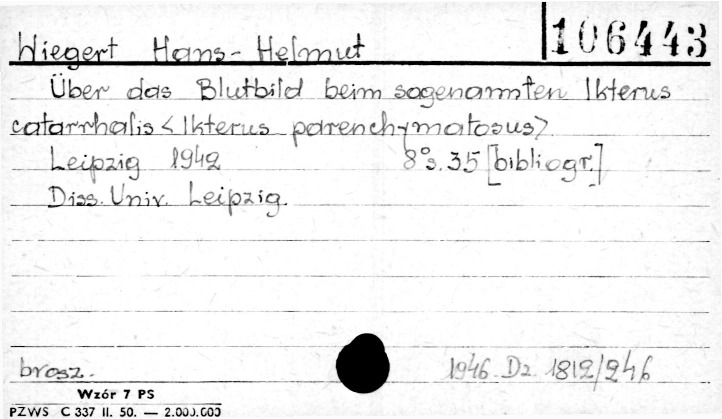 Wiegert Hans-Helmut 106443
Über das Blutbild beim sogenannten Ikterus
catarrhalis <Ikterus parenchymatosus>
Leipzig 1942 8° s. 35 [bibliogr.]
Diss. Univ. Leipzig.
brosz. 1946 Dz 1812/246
Wzór 7 PS
PZWS C 337 II. 50. — 2.000.000